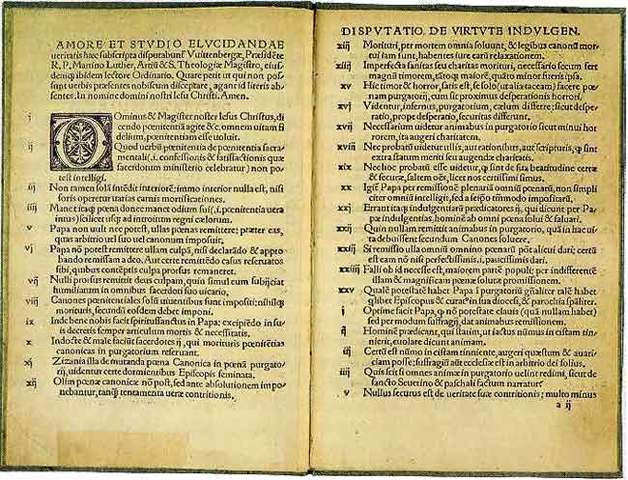 AMORE ET STVDIO ELVCIDANDAE
ueritatis haec subscripta disputabunt Vuittenbergæ, Præsidēte
R. P. Martino Luther, Artiū & S. Theologiæ Magistro, eius-
demq; ibidem lectore Ordinario. Quare petit ut qui non pos-
sunt uerbis præsentes nobiscum disceptare, agant id literis ab-
sentes. In nomine domini nostri Iesu Christi. Amen.
i Ominus & Magister noster Iesus Christus, di
cendo pœnitentiā agite &c. omnem uitam fi
delium, pœnitentiam esse uoluit.
ij Quod uerbū pœnitentia de pœnitentia sacra-
mentali (.i. confessionis & satisfactionis quæ
sacerdotum ministerio celebratur) non po-
test intelligi.
iij Non tamen solā intēdit interiorē: immo interior nulla est, nisi
foris operetur uarias carnis mortificationes.
iiij Manet itaq; pœna donec manet odium sui (.i. pœnitentia uera
intus) scilicet usq; ad introitum regni cælorum.
v Papa non uult nec potest, ullas pœnas remittere: præter eas,
quas arbitrio uel suo uel canonum imposuit.
vj Papa nō potest remittere ullam culpā, nisi declarādo & appro
bando remissam a deo. Aut certe remittēdo casus reseruatos
sibi, quibus contēptis culpa prorsus remaneret.
vij Nulli prorsus remittit deus culpam, quin simul eum subijciat
humiliatum in omnibus sacerdoti suo uicario.
viij Canones pœnitentiales solū uiuentibus sunt impositi: nihilq;
morituris, secundū eosdem debet imponi.
ix Inde bene nobis facit spiritussanctus in Papa: excipiēdo in su-
is decretis semper articulum mortis & necessitatis.
x Indocte & male faciūt sacerdotes ij, qui morituris pœnitētias
canonicas in purgatorium reseruant.
xj Zizania illa de mutanda pœna Canonica in pœnā purgato-
rij, uidentur certe dormientibus Episcopis seminata.
xij Olim pœnæ canonicæ nō post, sed ante absolutionem impo-
nebantur, tanq̄ tentamenta ueræ contritionis.
DISPVTATIO DE VIRTVTE INDVLGEN.
xiij Morituri, per mortem omnia soluunt, & legibus canonū mor-
tui iam sunt, habentes iure earū relaxationem.
xiiij Imperfecta sanitas seu charitas morituri, necessario secum fert
magnū timorem, tātoq; maiorē, quāto minor fuerit ipsa.
xv Hic timor & horror, satis est, se solo (ut alia taceam) facere pœ-
nam purgatorij, cum sit proximus desperationis horrori.
xvj Videntur, infernus, purgatorium, cælum differre: sicut despe-
ratio, prope desperatio, securitas differunt.
xvij Necessarium uidetur animabus in purgatorio sicut minui hor
rorem, ita augeri charitatem.
xviij Nec probatū uidetur ullis, aut rationibus, aut scripturis, q̄ sint
extra statum meriti seu augendæ charitatis.
xix Nec hoc probatū esse uidetur, q̄ sint de sua beatitudine certæ
& securæ, saltem oēs, licet nos certissimi simus.
xx Igit̄ Papa per remissionē plenariā omniū pœnarū, non simpli
citer omniū intelligit, sed a seipso tm̄modo impositarū.
xxj Errant itaq; indulgentiarū prædicatores ij, qui dicunt per Pa-
pæ indulgentias, hominē ab omni pœna solui & saluari.
xxij Quin nullam remittit animabus in purgatorio, quā in hac ui-
ta debuissent secundum Canones soluere.
xxiij Si remissio ulla omniū omnino pœnarū pōt alicui dari; certū
est eam nō nisi perfectissimis .i. paucissimis dari.
xxiiij Falli ob id necesse est, maiorem partē populi: per indifferentē
illam & magnificam pœnæ solutæ promissionem.
xxv Qualē potestatē habet Papa ī purgatoriū gn̄aliter talē habet
quilibet Episcopus & curat⁹ in sua diocesi, & parochia sp̄āliter.
i Optime facit Papa, q̄ nō potestate clauis (quā nullam habet)
sed per modum suffragij, dat animabus remissionem.
ij Hominē prædicant, qui statim, ut iactus nūmus in cistam tin-
nierit, euolare dicunt animam.
iij Certū est nūmo in cistam tinniente, augeri quæstum & auari-
ciam posse: suffragiū aūt ecclesiæ est in arbitrio dei solius.
iiij Quis scit si omnes animæ in purgatorio uelint redimi, sicut de
sancto Seuerino & paschali factum narratur
v Nullus securus est de ueritate suæ contritionis; multo minus
a ij